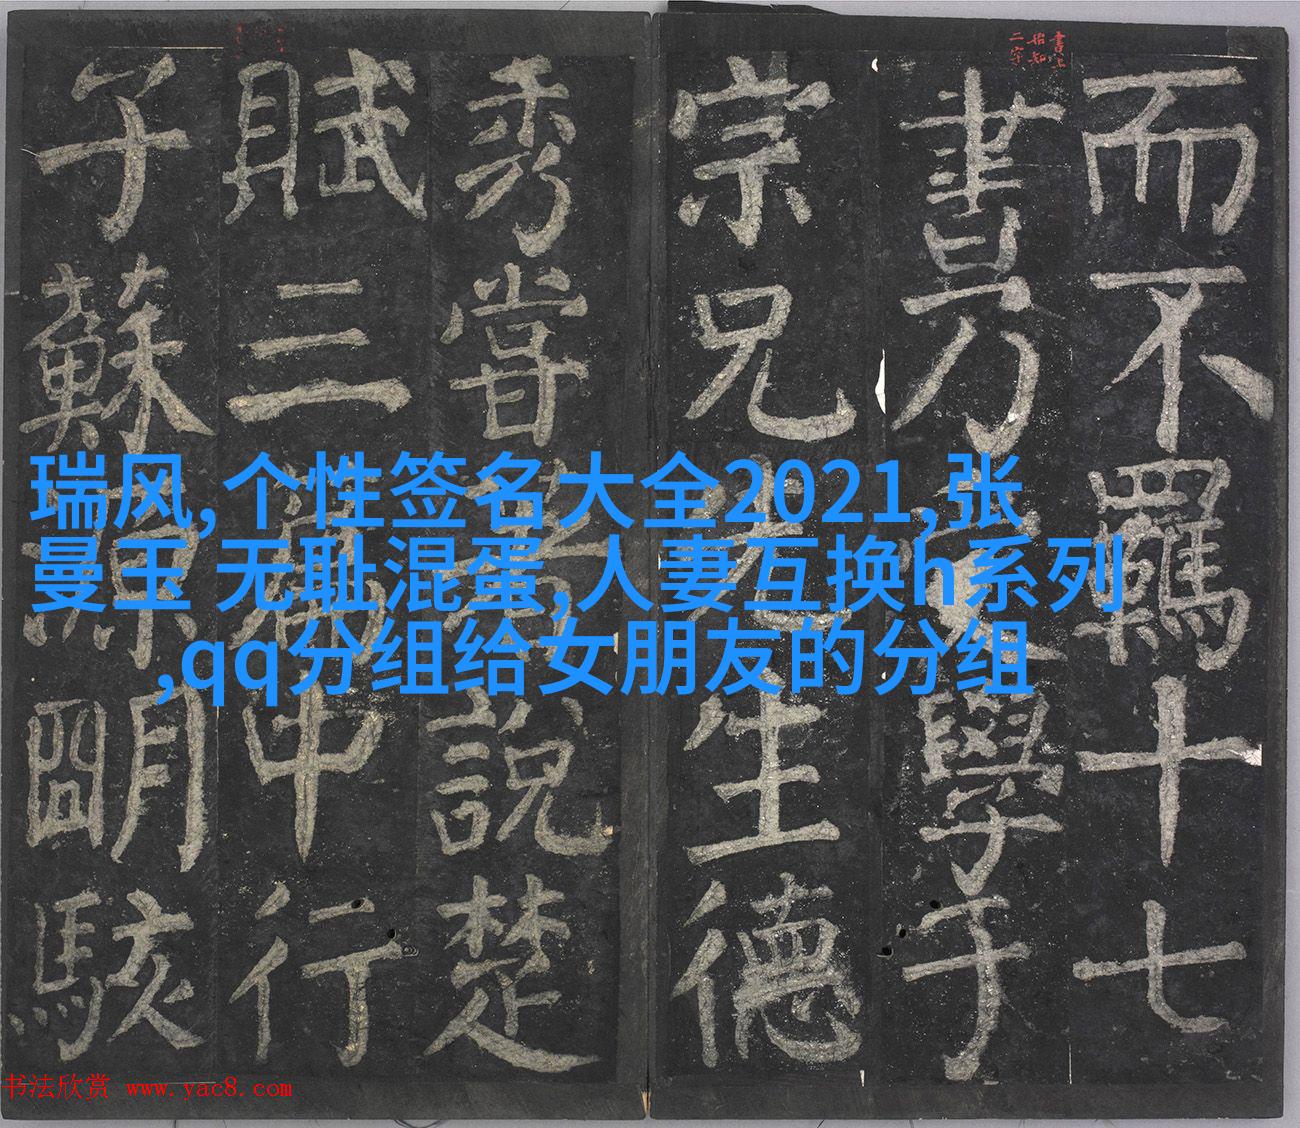 書上
始知
二字
而不羈十七
書乃學于
宗兄先生德
秀嘗著說楚
賦三篇中行
子蘇源明駭
瑞风,个性签名大全2021,张
曼玉 无耻混蛋,人妻互换h系列
,qq分组给女朋友的分组
书法欣赏 www.yac8.com